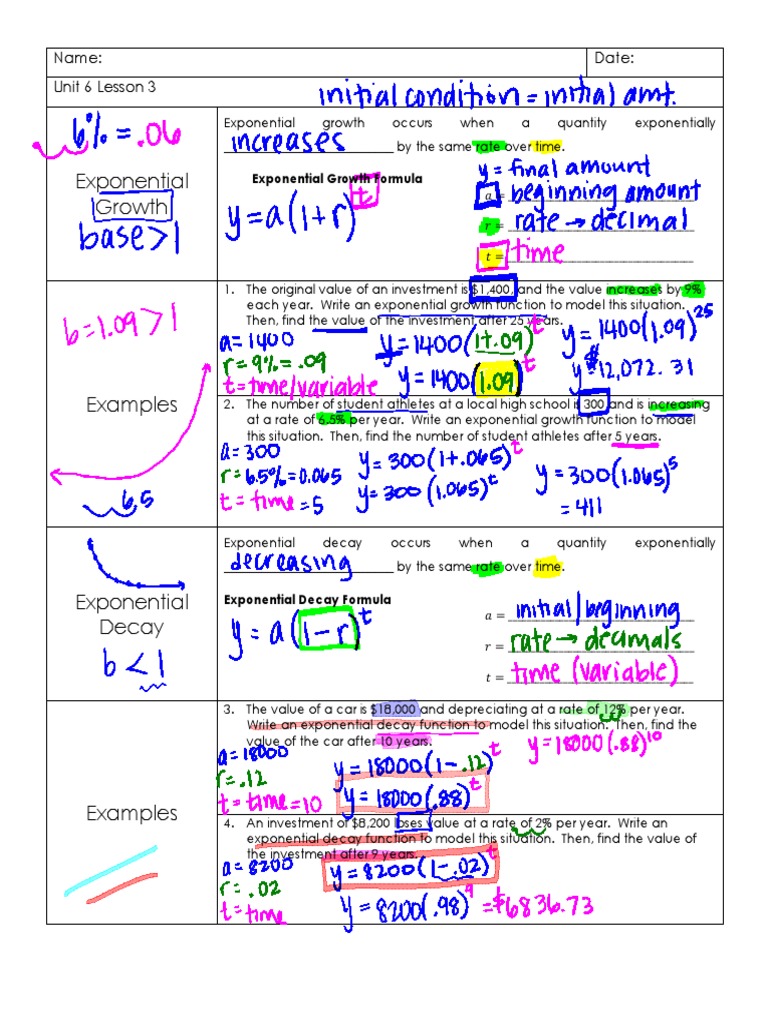 Name:
Date:
Unit 6 Lesson 3
initial condition = initial amt.
6% = .06
Exponential
Growth
base > 1
Exponential growth occurs when a quantity exponentially
increases by the same rate over time.
Exponential Growth Formula
y = a(1+r)^t
y = final amount
a = beginning amount
r = rate → decimal
t = time
b = 1.09 > 1
Examples
6.5
1. The original value of an investment is $1,400, and the value increases by 9%
each year. Write an exponential growth function to model this situation.
Then, find the value of the investment after 25 years.
a = 1400
r = 9% = .09
t = time/variable
y = 1400(1+.09)^t
y = 1400(1.09)^t
y = 1400(1.09)^25
y = $12,072.31
2. The number of student athletes at a local high school is 300 and is increasing
at a rate of 6.5% per year. Write an exponential growth function to model
this situation. Then, find the number of student athletes after 5 years.
a = 300
r = 6.5% = 0.065
t = time = 5
y = 300(1+.065)^t
y = 300(1.065)^t
y = 300(1.065)^5
= 411
Exponential
Decay
b < 1
Exponential decay occurs when a quantity exponentially
decreasing by the same rate over time.
Exponential Decay Formula
y = a(1-r)^t
a = initial/beginning
r = rate → decimals
t = time (variable)
Examples
3. The value of a car is $18,000 and depreciating at a rate of 12% per year.
Write an exponential decay function to model this situation. Then, find the
value of the car after 10 years.
a = 18000
r = .12
t = time = 10
y = 18000(1-.12)^t
y = 18000(.88)^t
y = 18000(.88)^10
4. An investment of $8,200 loses value at a rate of 2% per year. Write an
exponential decay function to model this situation. Then, find the value of
the investment after 9 years.
a = 8200
r = .02
t = time
y = 8200(1-.02)^t
y = 8200(.98)^9 = $6836.73